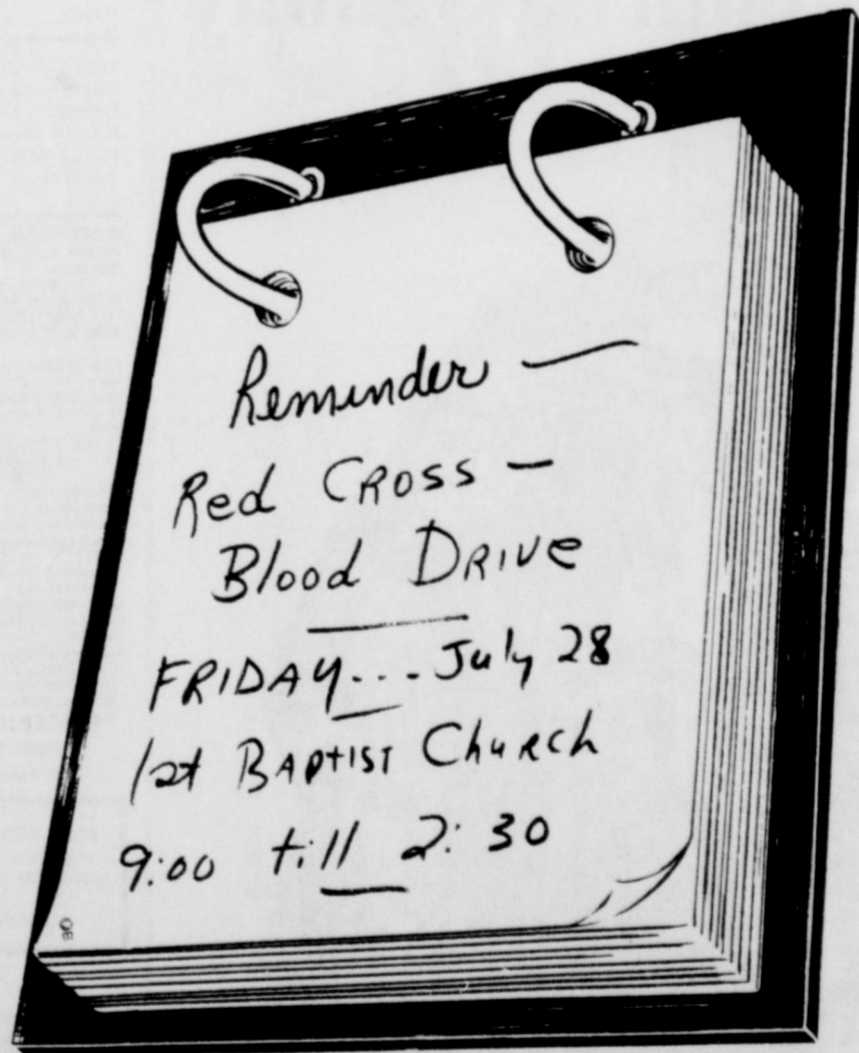 Reminder —
Red Cross —
Blood Drive
FRIDAY... July 28
1st Baptist Church
9:00 till 2:30